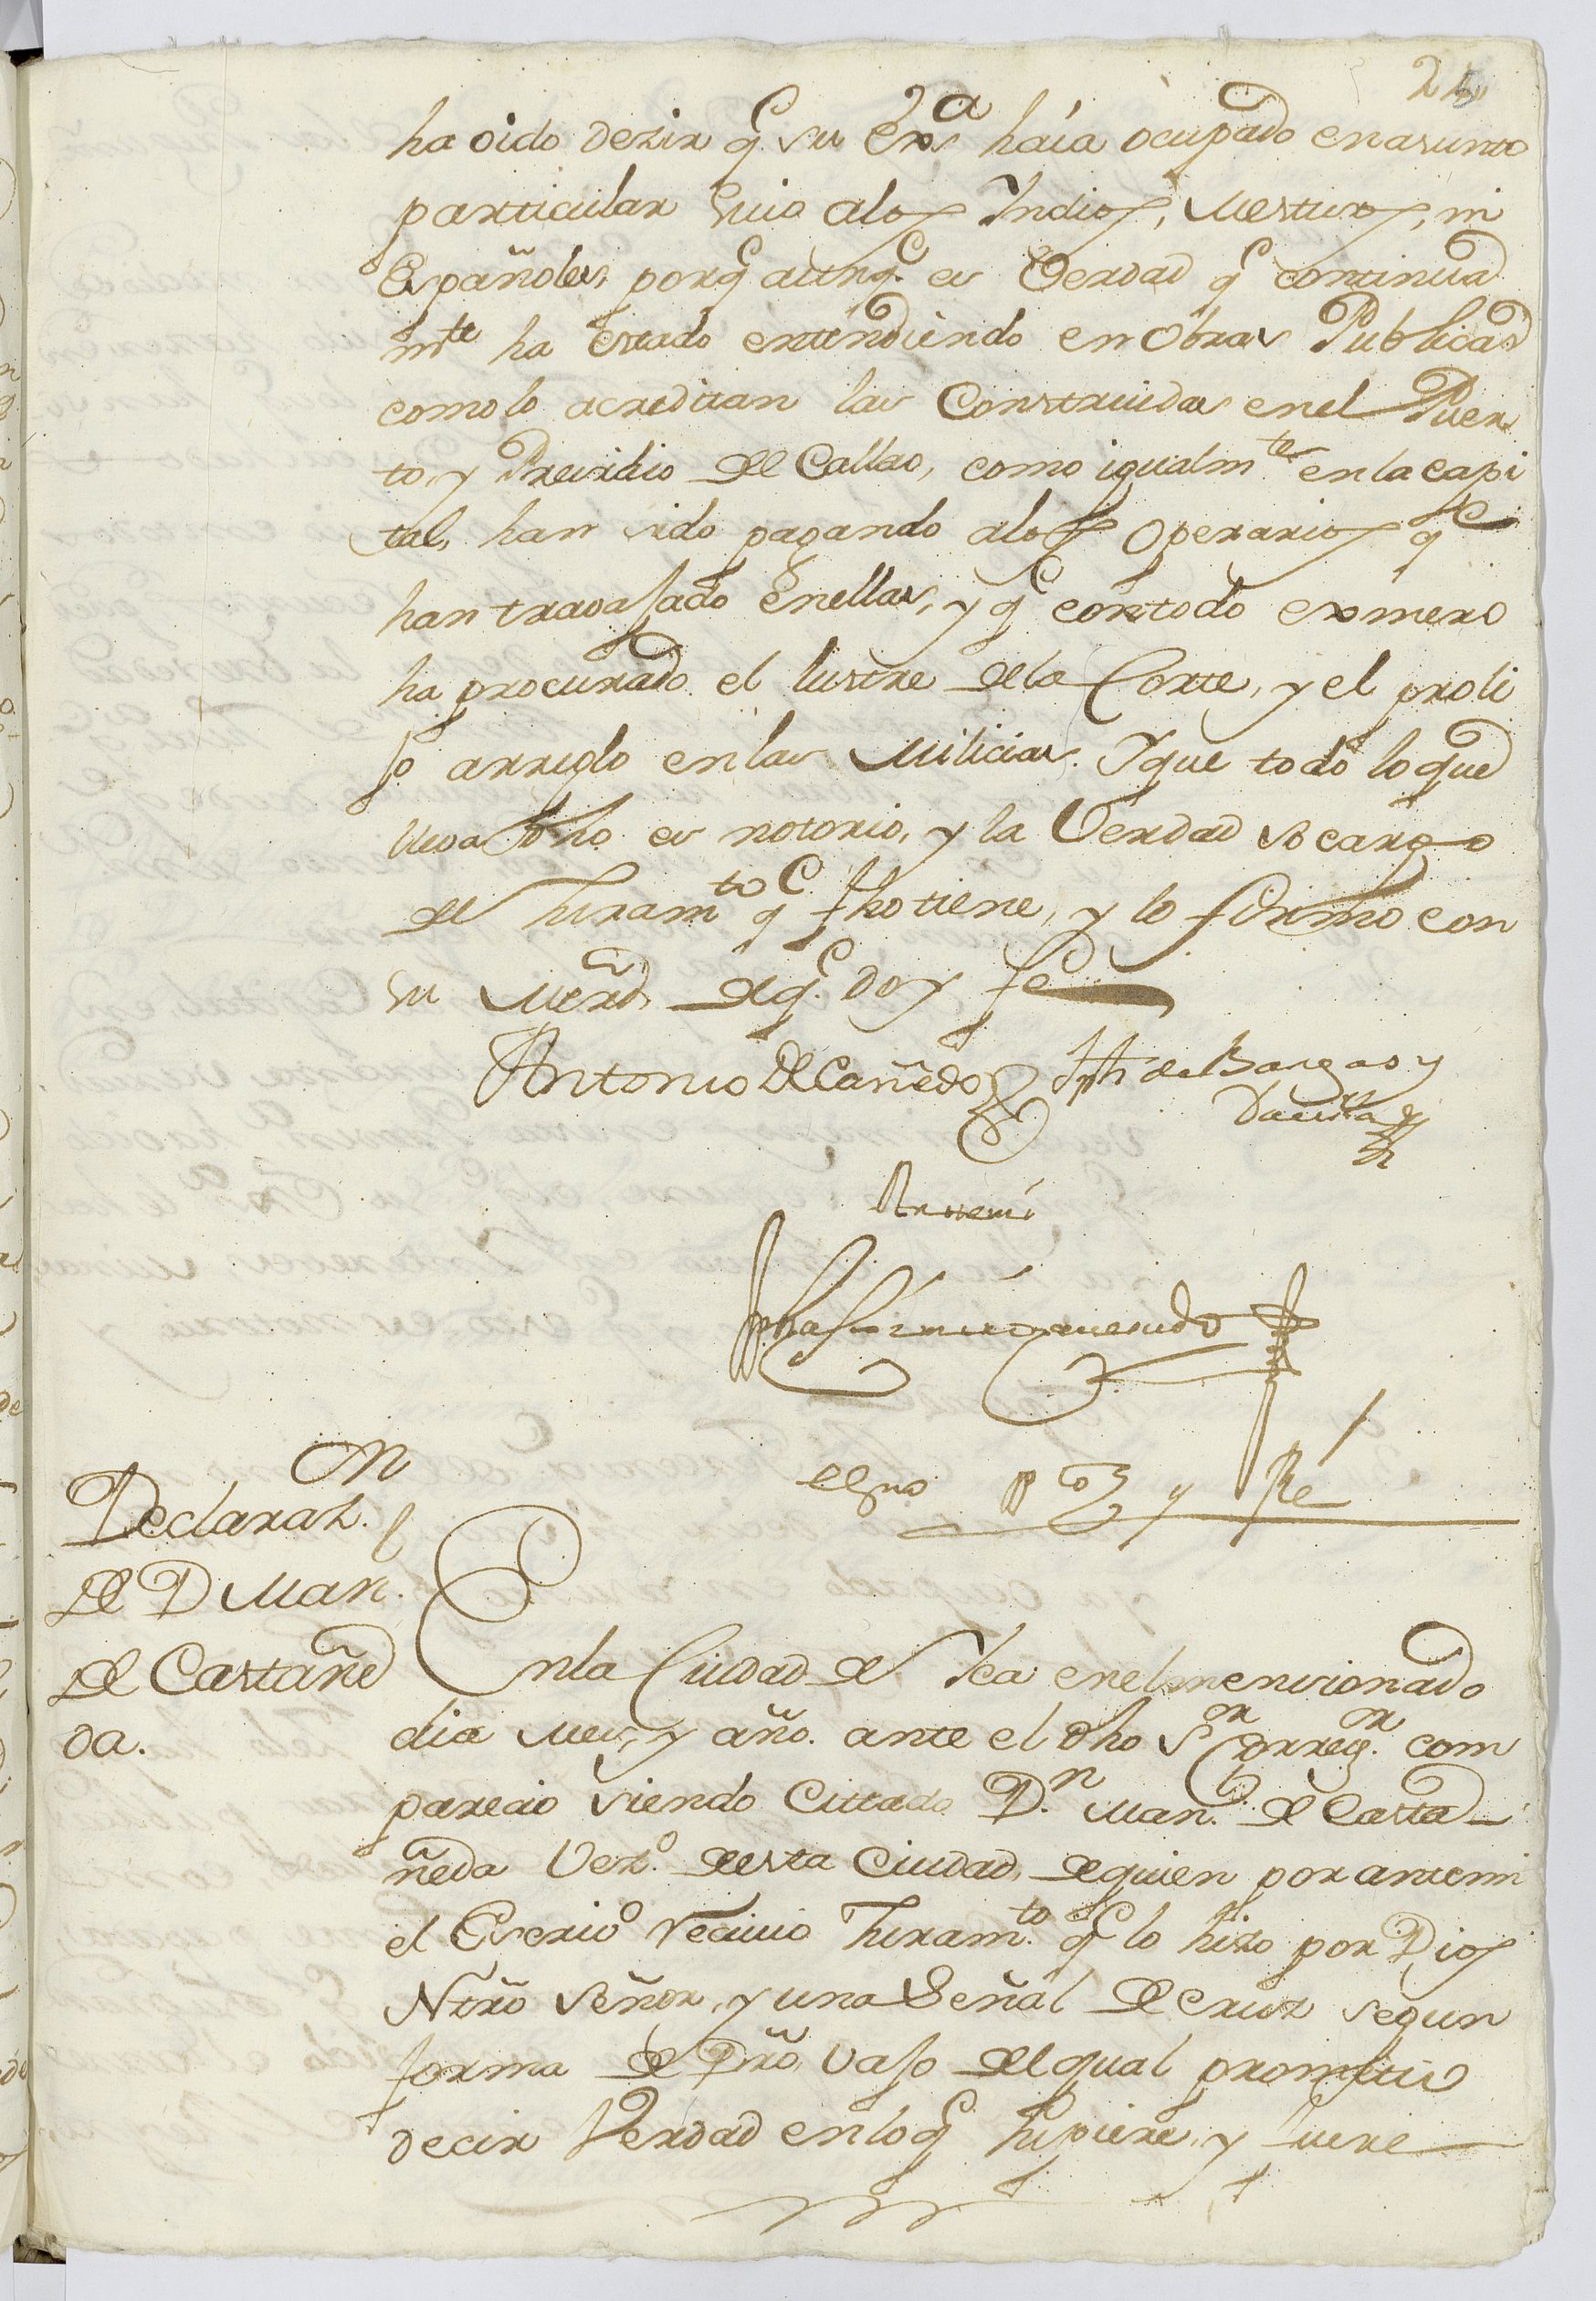 25
ha oido dezir q.e su Ex.a haia ocupado en asunto
particular suio alos Indios, Mestizos, ni
Españoles, porq.e aunq.e es Verdad q.e continuad
m.te ha estado entendiendo en Obras Publicas
como lo acreditan las Construidas en el Puer
to, y Presidio del Callao, como igualm.te en la capi
tal, han sido pagando alos Operarios q.e
han travajado en ellas, y q.e con todo exmero
ha procurado el lustre dela Corte, y el proli
jo arreglo en las Milicias. Y que todo lo que
lleva dho es notorio, y la Verdad so cargo
del Juram.to q.e fho tiene, y lo firmo con
su Merd, de q.e doy fe
Antonio de Cañedo Jph de Bargas y
Davila
Ante mi
de su
Declaraz.on
de D Man.
de Castañe
da.
En la Ciudad de Ica en el mencionado
dia mes, y año. ante el dho S.or Correg.or com
parecio siendo Cittado D.n Man. de Casta
ñeda Vez.o de esta Ciudad, de quien por ante mi
el Escrio recivio Juram.to q.e lo hizo por Dios
Ntro Señor, y una Señal de cruz segun
forma de Dro, vajo del qual prometio
decir Verdad en lo q.e supiere, y fuere